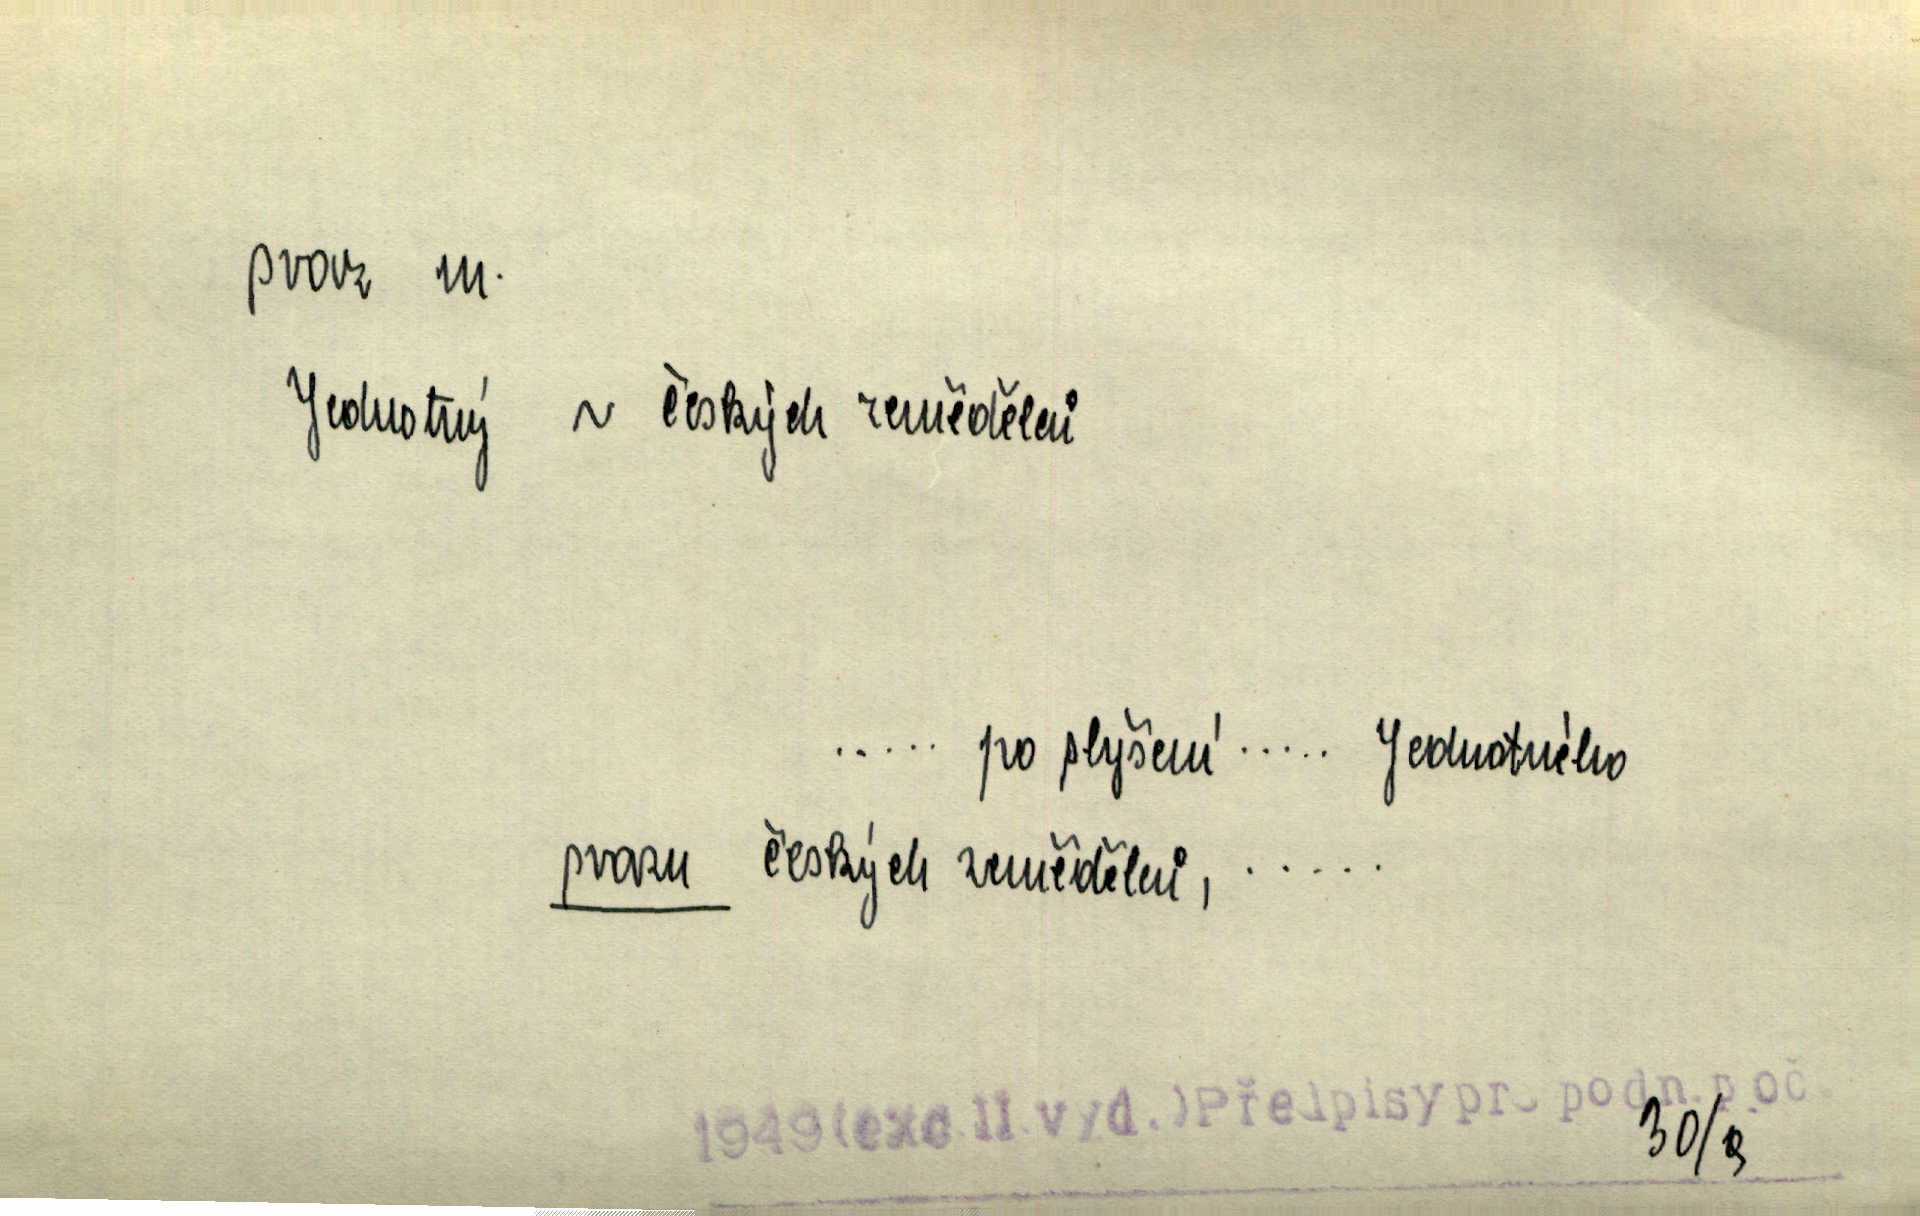 svaz m.
Jednotný ~ českých zemědělců
..... po slyšení ..... Jednotného
svazu českých zemědělců, .....
1949(exc II vyd.)Předpisy pro podn.poč.
30/